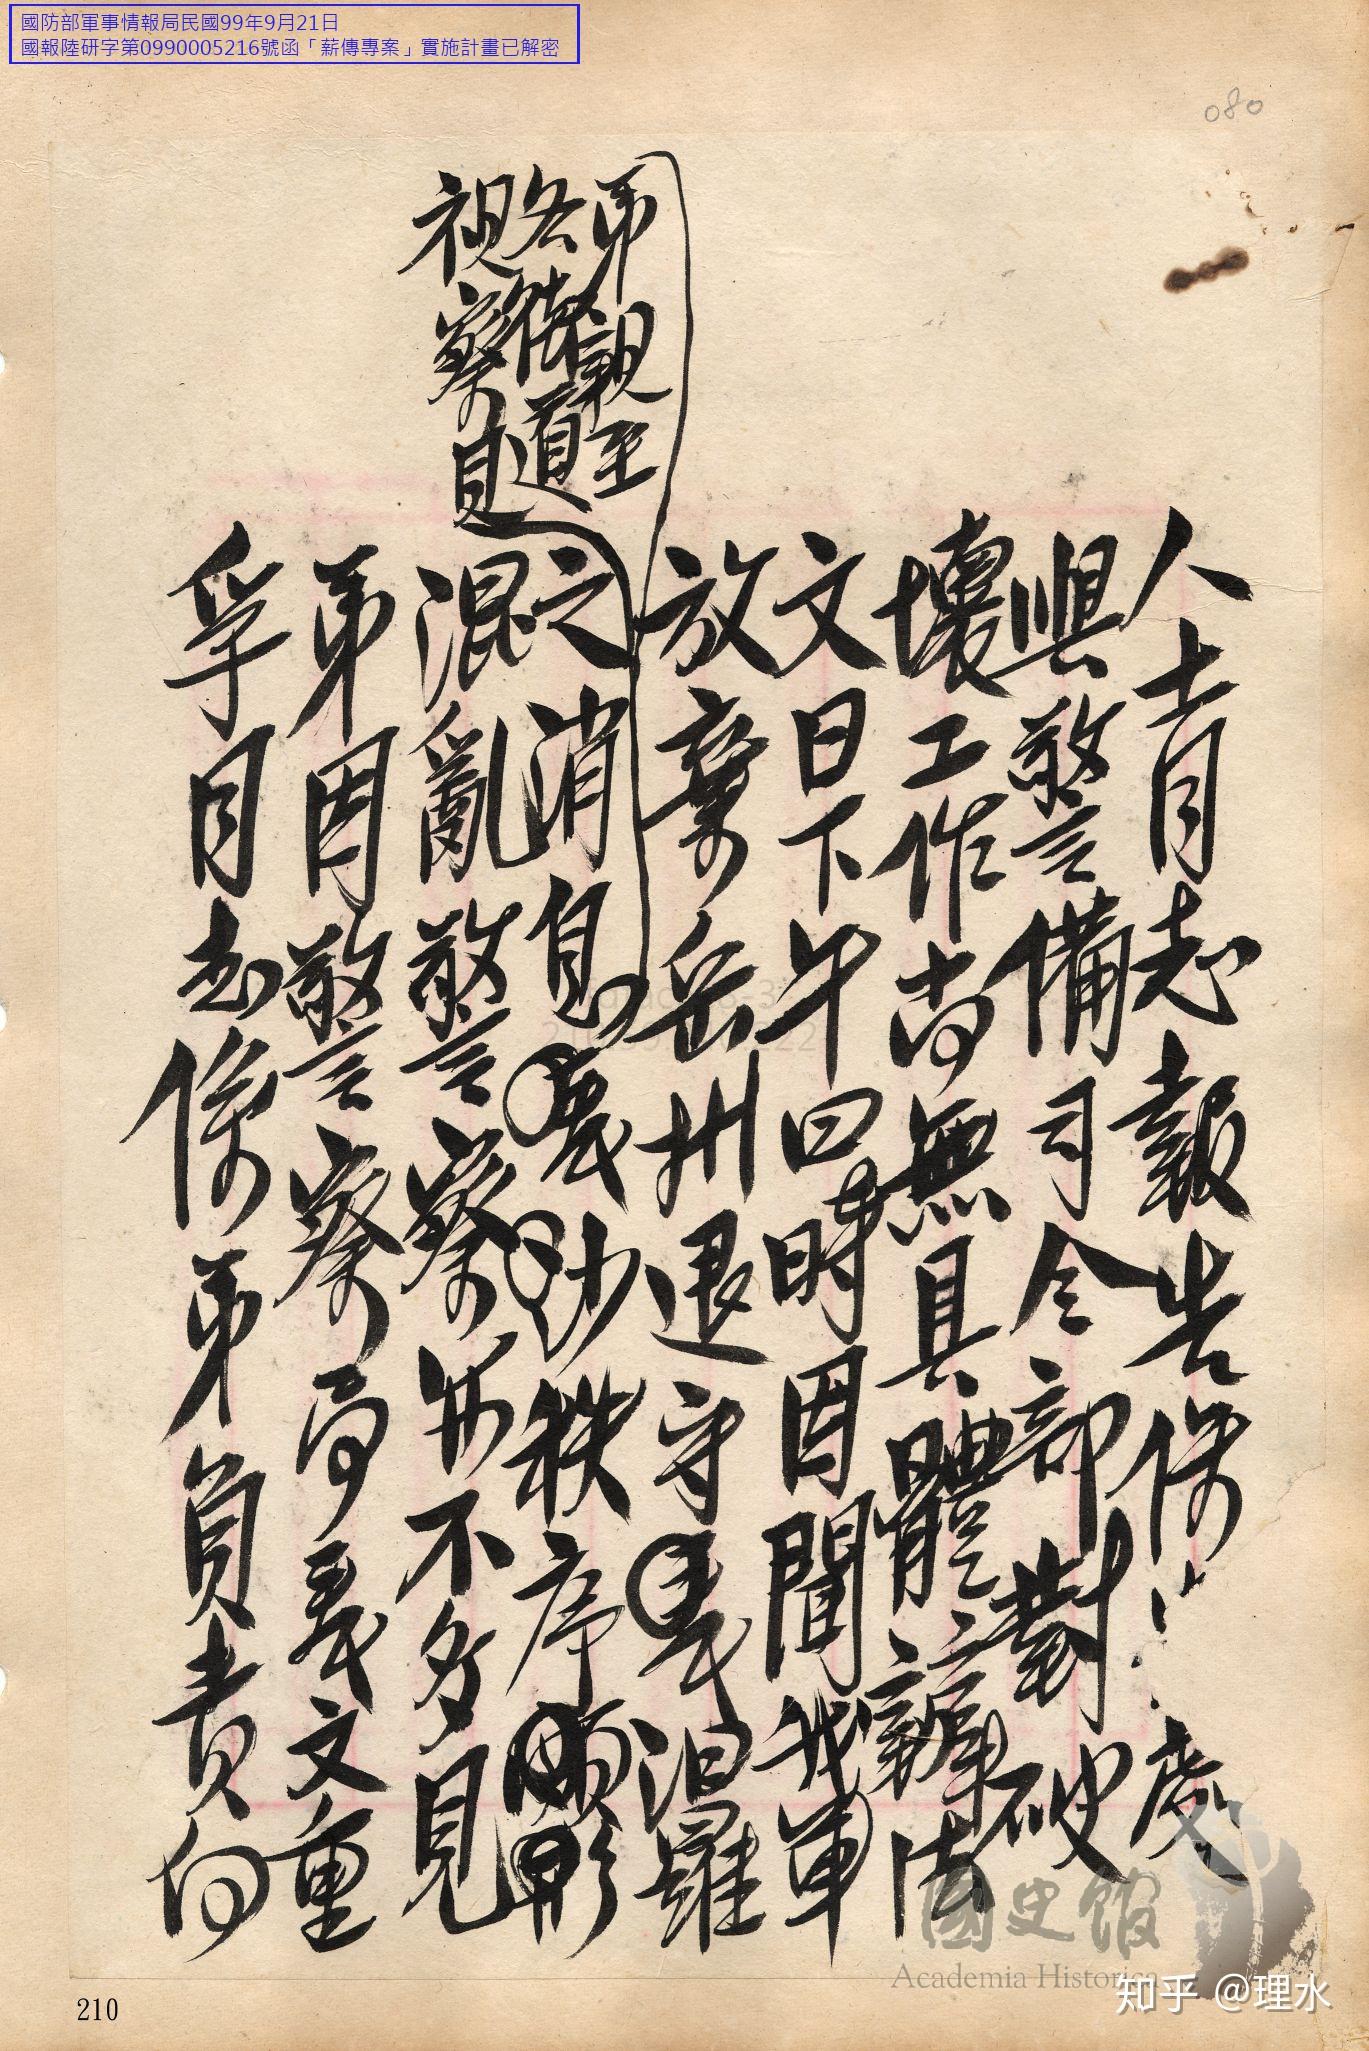 國防部軍事情報局民國99年9月21日
國報陸研字第0990005216號函「薪傳專案」實施計畫已解密
080
同志報告
與警備司令部對破
壞工作尚無具體辦法
文日下午四時因聞我軍
放棄岳州退守汨羅
弟親至
各街道
視察見
之消息長沙秩序頗形
混亂警察亦不多見
弟因警察局長文重
孚同志係弟負責向
國史館
Academia Historica
知乎 @理水
210